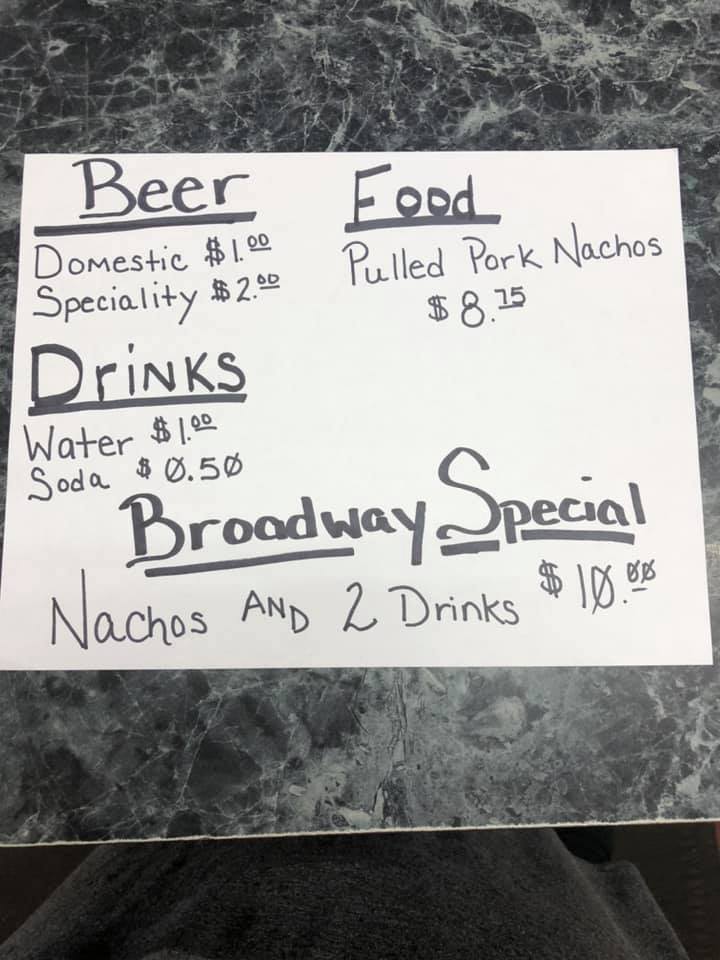 Beer
Domestic $1.00
Speciality $2.00
Drinks
Water $1.00
Soda $0.50
Food
Pulled Pork Nachos
$8.75
Broadway Special
Nachos AND 2 Drinks $10.00